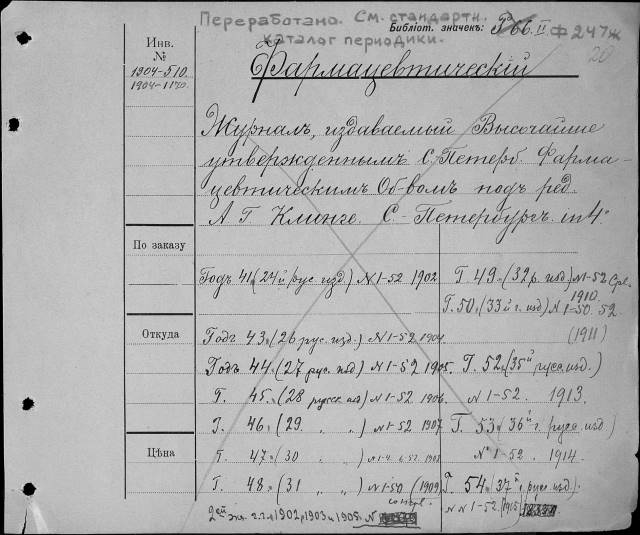 Переработано. См. стандартн.
каталог периодики.
Библіот. значекъ: Р 66. II Ф 247ж
20
Инв.
№
1904-510.
1904-1170.
Фармацевтическій
Журналъ, издаваемый Высочайше
утвержденнымъ С. Петерб. Фарма-
цевтическимъ Об-вомъ подъ ред.
А. Г. Клинге. С.-Петербургъ. in 4°
По заказу
Годъ 41й (24й рус. изд.) N 1-52 1902.
Г. 49й (32 р. изд.) N 1-52
1910.
Г. 50й (33й г. изд) N 1-50. 52
(1911)
Откуда
Годъ 43й (26 рус. изд.) N 1-52 1904.
Годъ 44й (27 рус. изд) N 1-52 1905.
Г. 52й (35й русс. изд.)
Г. 45й (28 русск. изд) N 1-52 1906.
N 1-52. 1913.
Г. 46й (29 " " ) N 1-52 1907
Г. 53й (36й г. русс. изд)
Цѣна
Г. 47й (30 " ) N 1-4. 6-52. 1908
N 1-52. 1914.
Г. 48й (31 " " ) N 1-50 (1909)
Г. 54й (37й г. рус. изд).
N N 1-52. (1915)
2ой экз. г.г. 1902, 1903 и 1905. N